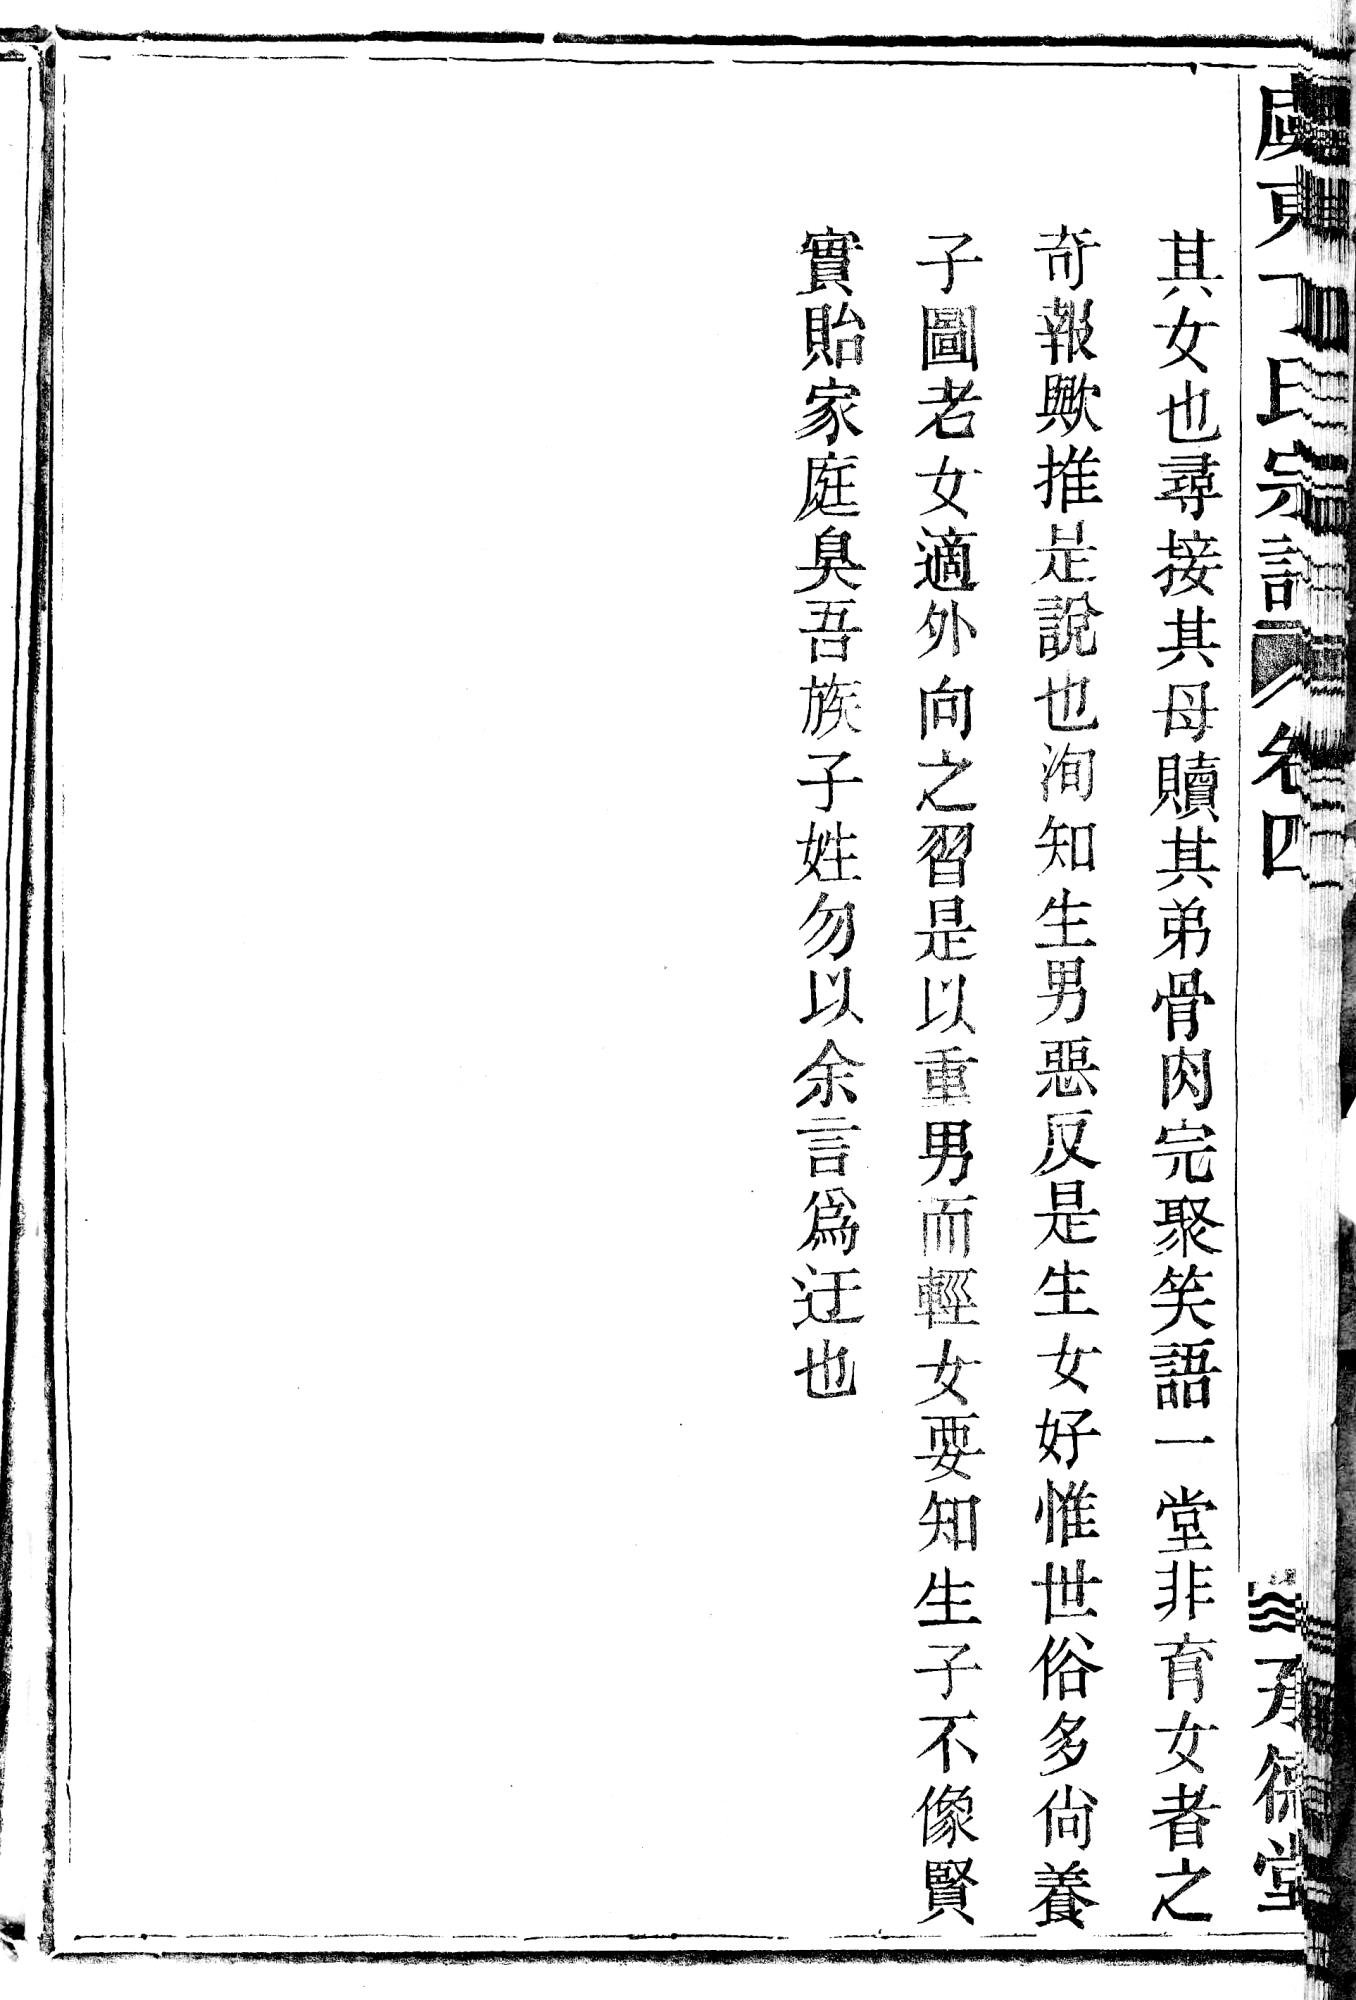 丁氏宗譜 卷四 承德堂
其女也尋接其母贖其弟骨肉完聚笑語一堂非育女者之
奇報歟推是說也洵知生男惡反是生女好惟世俗多尙養
子圖老女適外向之習是以重男而輕女要知生子不像賢
實貽家庭臭吾族子姓勿以余言爲迂也